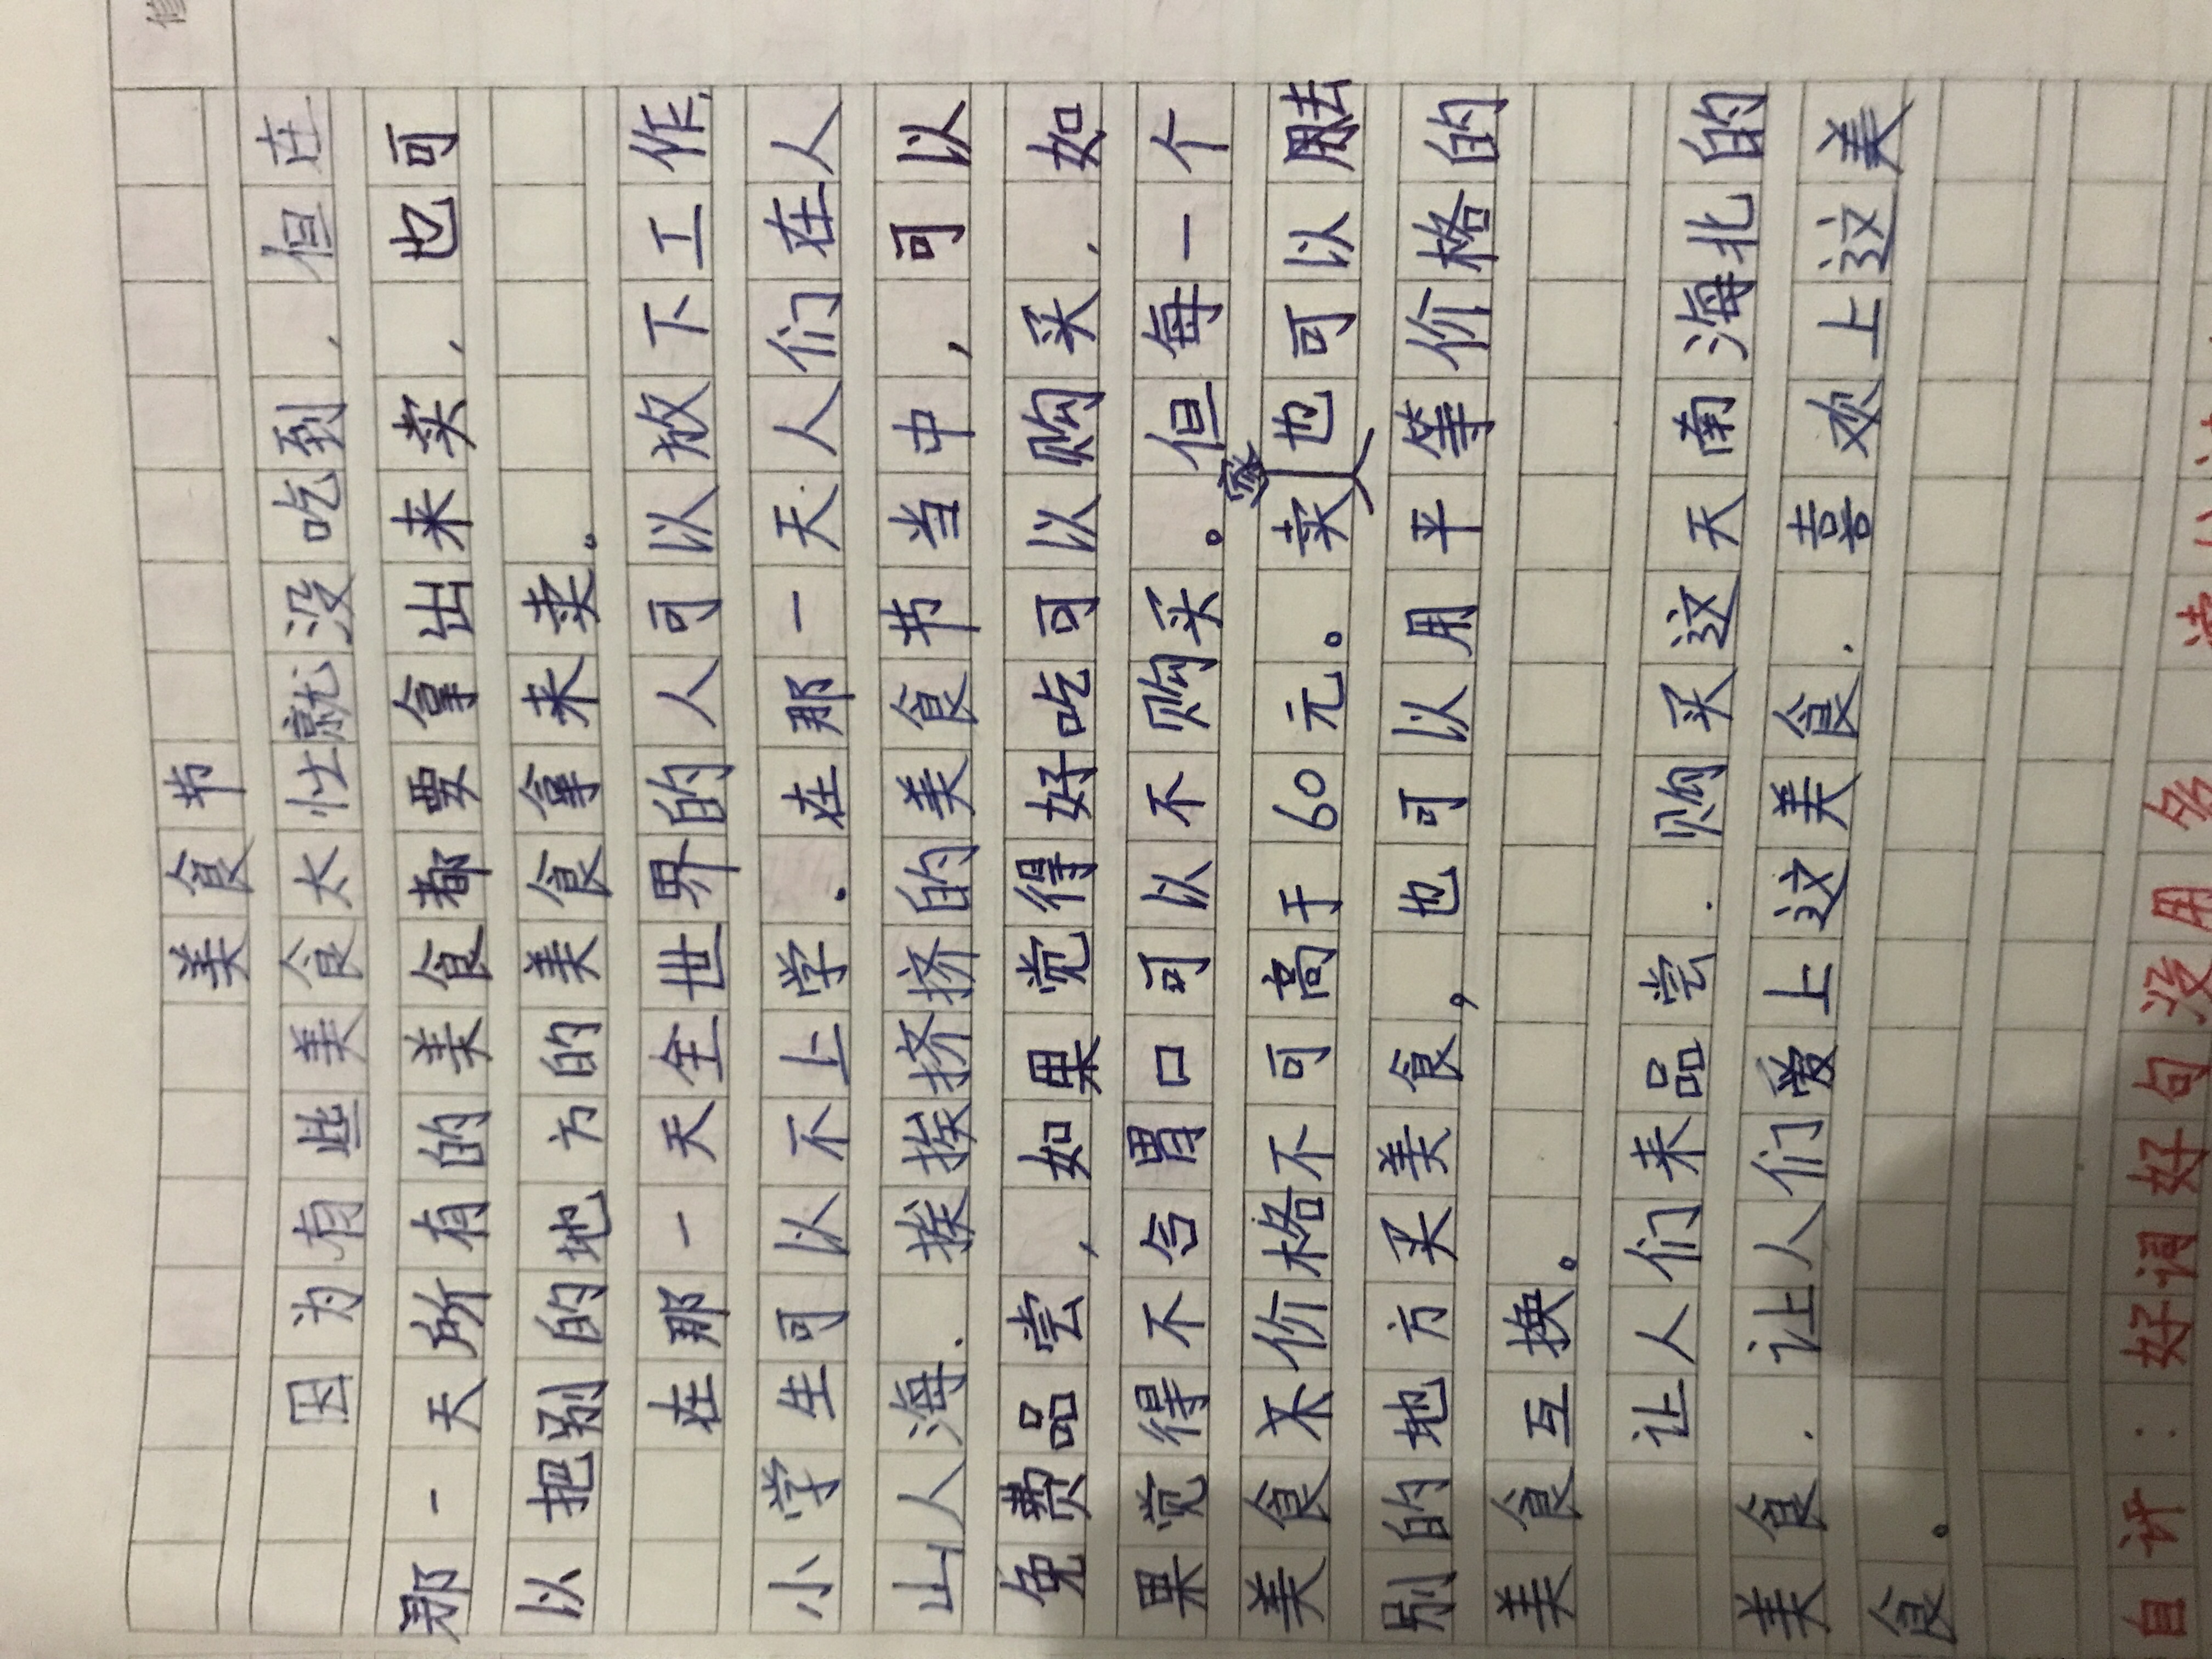 美食节
因为有些美食太忙就没吃到，但在
那一天所有的美食都要拿出来卖，也可
以把别的地方的美食拿来卖。
在那一天全世界的人可以放下工作，
小学生可以不上学．在那一天人们在人
山人海．挨挨挤挤的美食节当中，可以
免费品尝，如果觉得好吃可以购买，如
果觉得不合胃口可以不购买。但每一个
美食价格不可高于60元。卖家也可以去
别的地方买美食，也可以用平等价格的
美食互换。
让人们来品尝．购买这天南海北的
美食．让人们爱上这美食．喜欢上这美
食。
自评：好词好句没用多
修